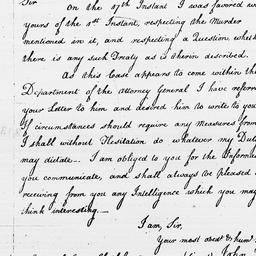 Sir
On the 17th Instant I was favored w
yours of the 1st Instant, respecting the Murder
mentioned in it, and respecting a Question, wheth
there is any such Treaty as is therein described.
As this Case appears to come within the
Department of the Attorney General I have referr
your Letter to him and desired him to write to you
If circumstances should require any Measures from
I shall without Hesitation do whatever my Dut
may dictate — I am obliged to you for the Informa
you communicate, and shall always be pleased
receiving from you any Intelligence which you may
think interesting. —
I am, Sir,
Your most obedt & hum
John